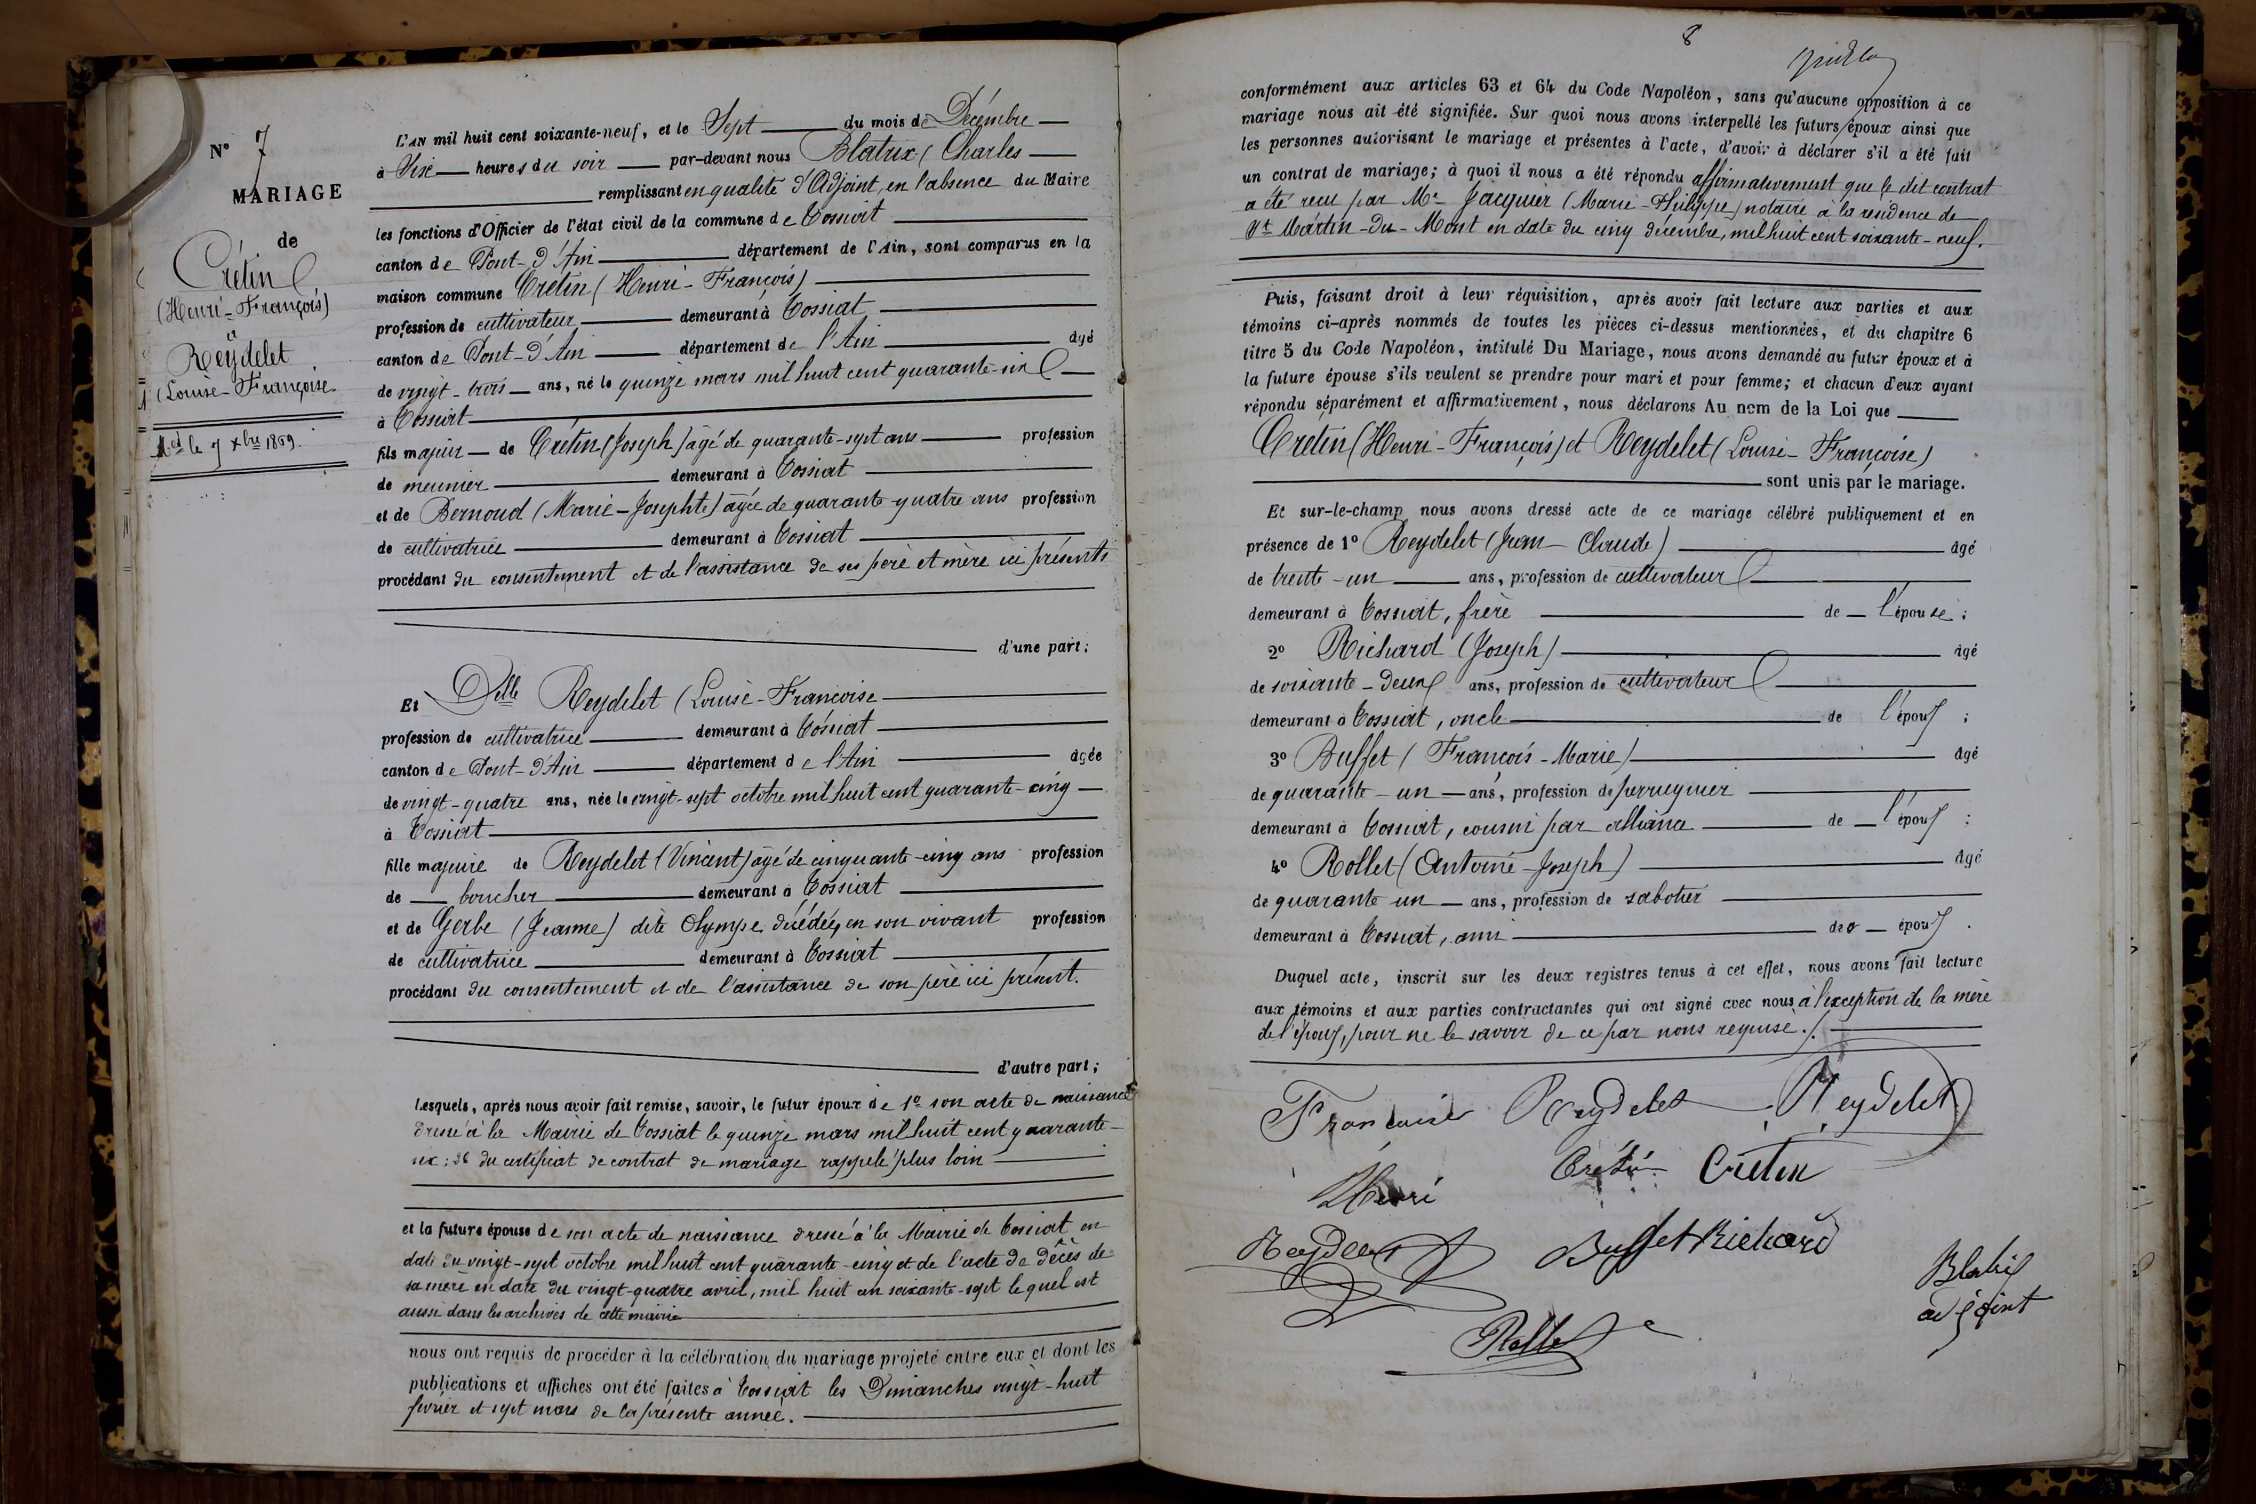 N° 7
MARIAGE
de
Crétin
(Henri-François)
à
Reydelet
(Louise-Françoise
Med le 7 Xbre 1869.
L'AN mil huit cent soixante-neuf, et le Sept du mois de Décembre
à Six heures du soir par-devant nous Blatrix (Charles
remplissant en qualité d'Adjoint, en l'absence du Maire
les fonctions d'Officier de l'état civil de la commune de Tossiat
canton de Pont-d'Ain département de l'Ain, sont comparus en la
maison commune Crétin (Henri-François)
profession de cultivateur demeurant à Tossiat
canton de Pont-d'Ain département de l'Ain âgé
de vingt-trois ans, né le quinze mars mil huit cent quarante-six
à Tossiat
fils majeur de Crétin (Joseph) âgé de quarante-sept ans profession
de meunier demeurant à Tossiat
et de Bernoud (Marie-Josephte) âgée de quarante quatre ans profession
de cultivatrice demeurant à Tossiat
procédant du consentement et de l'assistance de ses père et mère ici présents
d'une part;
Et Delle Reydelet (Louise-Françoise
profession de cultivatrice demeurant à Tossiat
canton de Pont-d'Ain département de l'Ain âgée
de vingt-quatre ans, née le vingt-sept octobre mil huit cent quarante-cinq
à Tossiat
fille majeure de Reydelet (Vincent) âgé de cinquante-cinq ans profession
de boucher demeurant à Tossiat
et de Gerbe (Jeanne) dite Olympe, décédée, en son vivant profession
de cultivatrice demeurant à Tossiat
procédant du consentement et de l'assistance de son père ici présent.
d'autre part;
Lesquels, après nous avoir fait remise, savoir, le futur époux de 1° son acte de naissance
dressé à la Mairie de Tossiat le quinze mars mil huit cent quarante-
six; 2° du certificat de contrat de mariage rappelé plus loin
et la future épouse de son acte de naissance dressé à la Mairie de Tossiat en
date du vingt-sept octobre mil huit cent quarante-cinq et de l'acte de décès de
sa mère en date du vingt-quatre avril, mil huit cen soixante-sept lequel est
aussi dans les archives de cette mairie
nous ont requis de procéder à la célébration du mariage projeté entre eux et dont les
publications et affiches ont été faites à Tossiat les Dimanches vingt-huit
février et sept mars de la présente année.
8
conformément aux articles 63 et 64 du Code Napoléon, sans qu'aucune opposition à ce
mariage nous ait été signifiée. Sur quoi nous avons interpellé les futurs époux ainsi que
les personnes autorisant le mariage et présentes à l'acte, d'avoir à déclarer s'il a été fait
un contrat de mariage; à quoi il nous a été répondu affirmativement que le dit contrat
a été reçu par Me Jacquier (Marie-Philippe) notaire à la résidence de
St Martin-du-Mont en date du cinq décembre, mil huit cent soixante-neuf.
Puis, faisant droit à leur réquisition, après avoir fait lecture aux parties et aux
témoins ci-après nommés de toutes les pièces ci-dessus mentionnées, et du chapitre 6
titre 5 du Code Napoléon, intitulé Du Mariage, nous avons demandé au futur époux et à
la future épouse s'ils veulent se prendre pour mari et pour femme; et chacun d'eux ayant
répondu séparément et affirmativement, nous déclarons Au nom de la Loi que
Crétin (Henri-François) et Reydelet (Louise-Françoise)
sont unis par le mariage.
Et sur-le-champ nous avons dressé acte de ce mariage célébré publiquement et en
présence de 1° Reydelet (Jean-Claude) âgé
de trente-un ans, profession de cultivateur
demeurant à Tossiat, frère de l'épouse;
2° Richard (Joseph) âgé
de soixante-deux ans, profession de cultivateur
demeurant à Tossiat, oncle de l'époux;
3° Buffet (François-Marie) âgé
de quarante-un ans, profession de perruquier
demeurant à Tossiat, cousin par alliance de l'époux;
4° Rollet (Antoine-Joseph) âgé
de quarante un ans, profession de sabotier
demeurant à Tossiat, ami des époux.
Duquel acte, inscrit sur les deux registres tenus à cet effet, nous avons fait lecture
aux témoins et aux parties contractantes qui ont signé avec nous à l'exception de la mère
de l'époux, pour ne le savoir de ce par nous requise./.
Françoise Reydelet Reydelet
Henri Crétin Crétin
Reydelet Buffet Richard
Blatrix
adjoint
Rollet